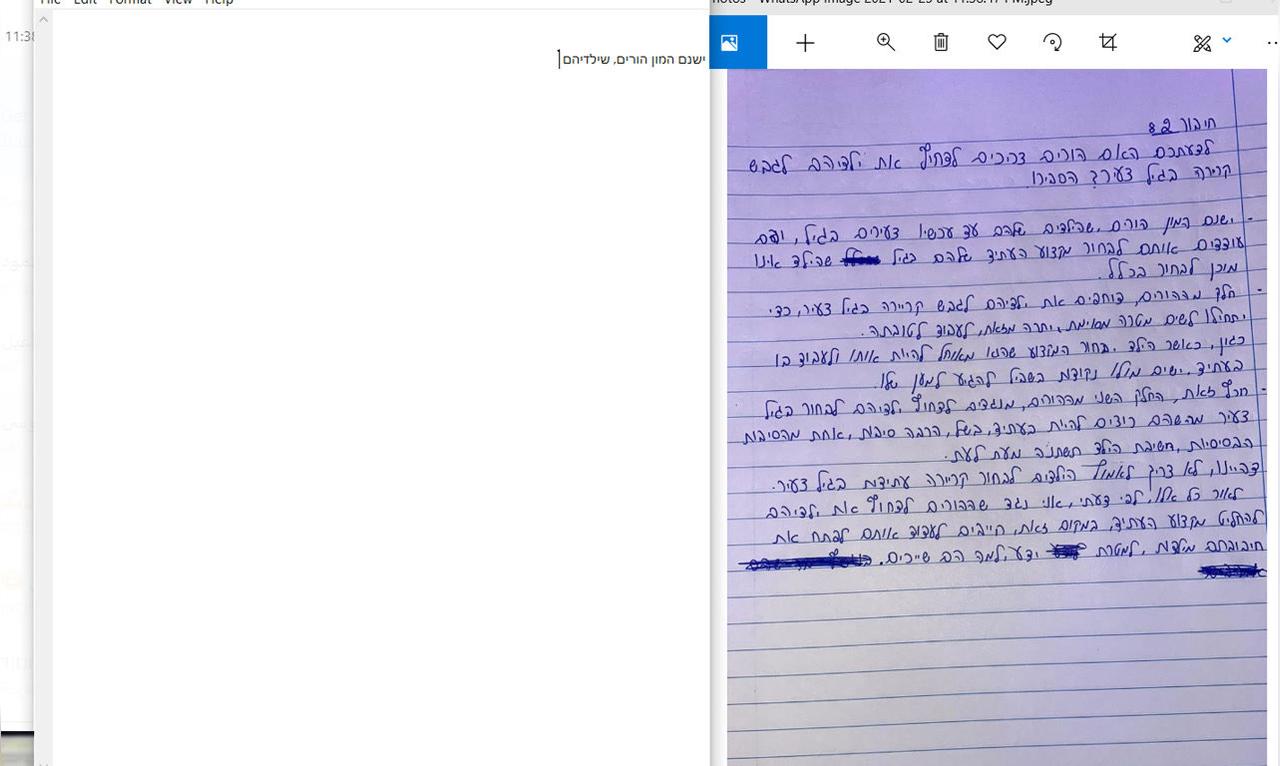 File Edit Format View Help
Photos - WhatsApp Image 2021-02-25 at 11.36.47 PM.jpeg
11:38
ישנם המון הורים, שילדיהם
חיבור 2:
לדעתכם האם הורים צריכים לדחוף את ילדיהם לגבש
קריירה בגיל צעיר? הסבירו.
- ישנם המון הורים, שהילדים שלהם עד עכשיו צעירים בגיל, והם
עודדים אותם לבחור מקצוע העתיד שלהם בגיל שהילד אינו
מוכן לבחור בכלל.
- חלק מההורים, דוחפים את ילדיהם לגבש קריירה בגיל צעיר, כדי
יתחילו לשים מטרה מסוימת, יתרה מזאת, לעבוד לטובתה.
כגון, כאשר הילד יבחור המקצוע שהוא מאחל להיות אותו ולעבוד בו
בעתיד, ישים מולו נקודות בשביל להגיע למען שלו.
- חרף זאת, החלק השני מההורים, מנגדים לדחוף ילדיהם לבחור בגיל
צעיר מה שהם רוצים להיות בעתיד, בשל, הרבה סיבות, אחת מהסיבות
הבסיסיות, חשיבת הילד תשתנה מעת לעת.
דהיינו, לא צריך לאמץ הילדים לבחור קריירה עתידית בגיל צעיר.
לאור כל אלו, לפי דעתי, אני נגד שההורים לדחוף את ילדיהם
להחליט מקצוע העתיד, במקום זאת, חייבים לעדוד אותם לפתח את
חיבובתם מילדות, למטרת ידע, למה הם שייכים.